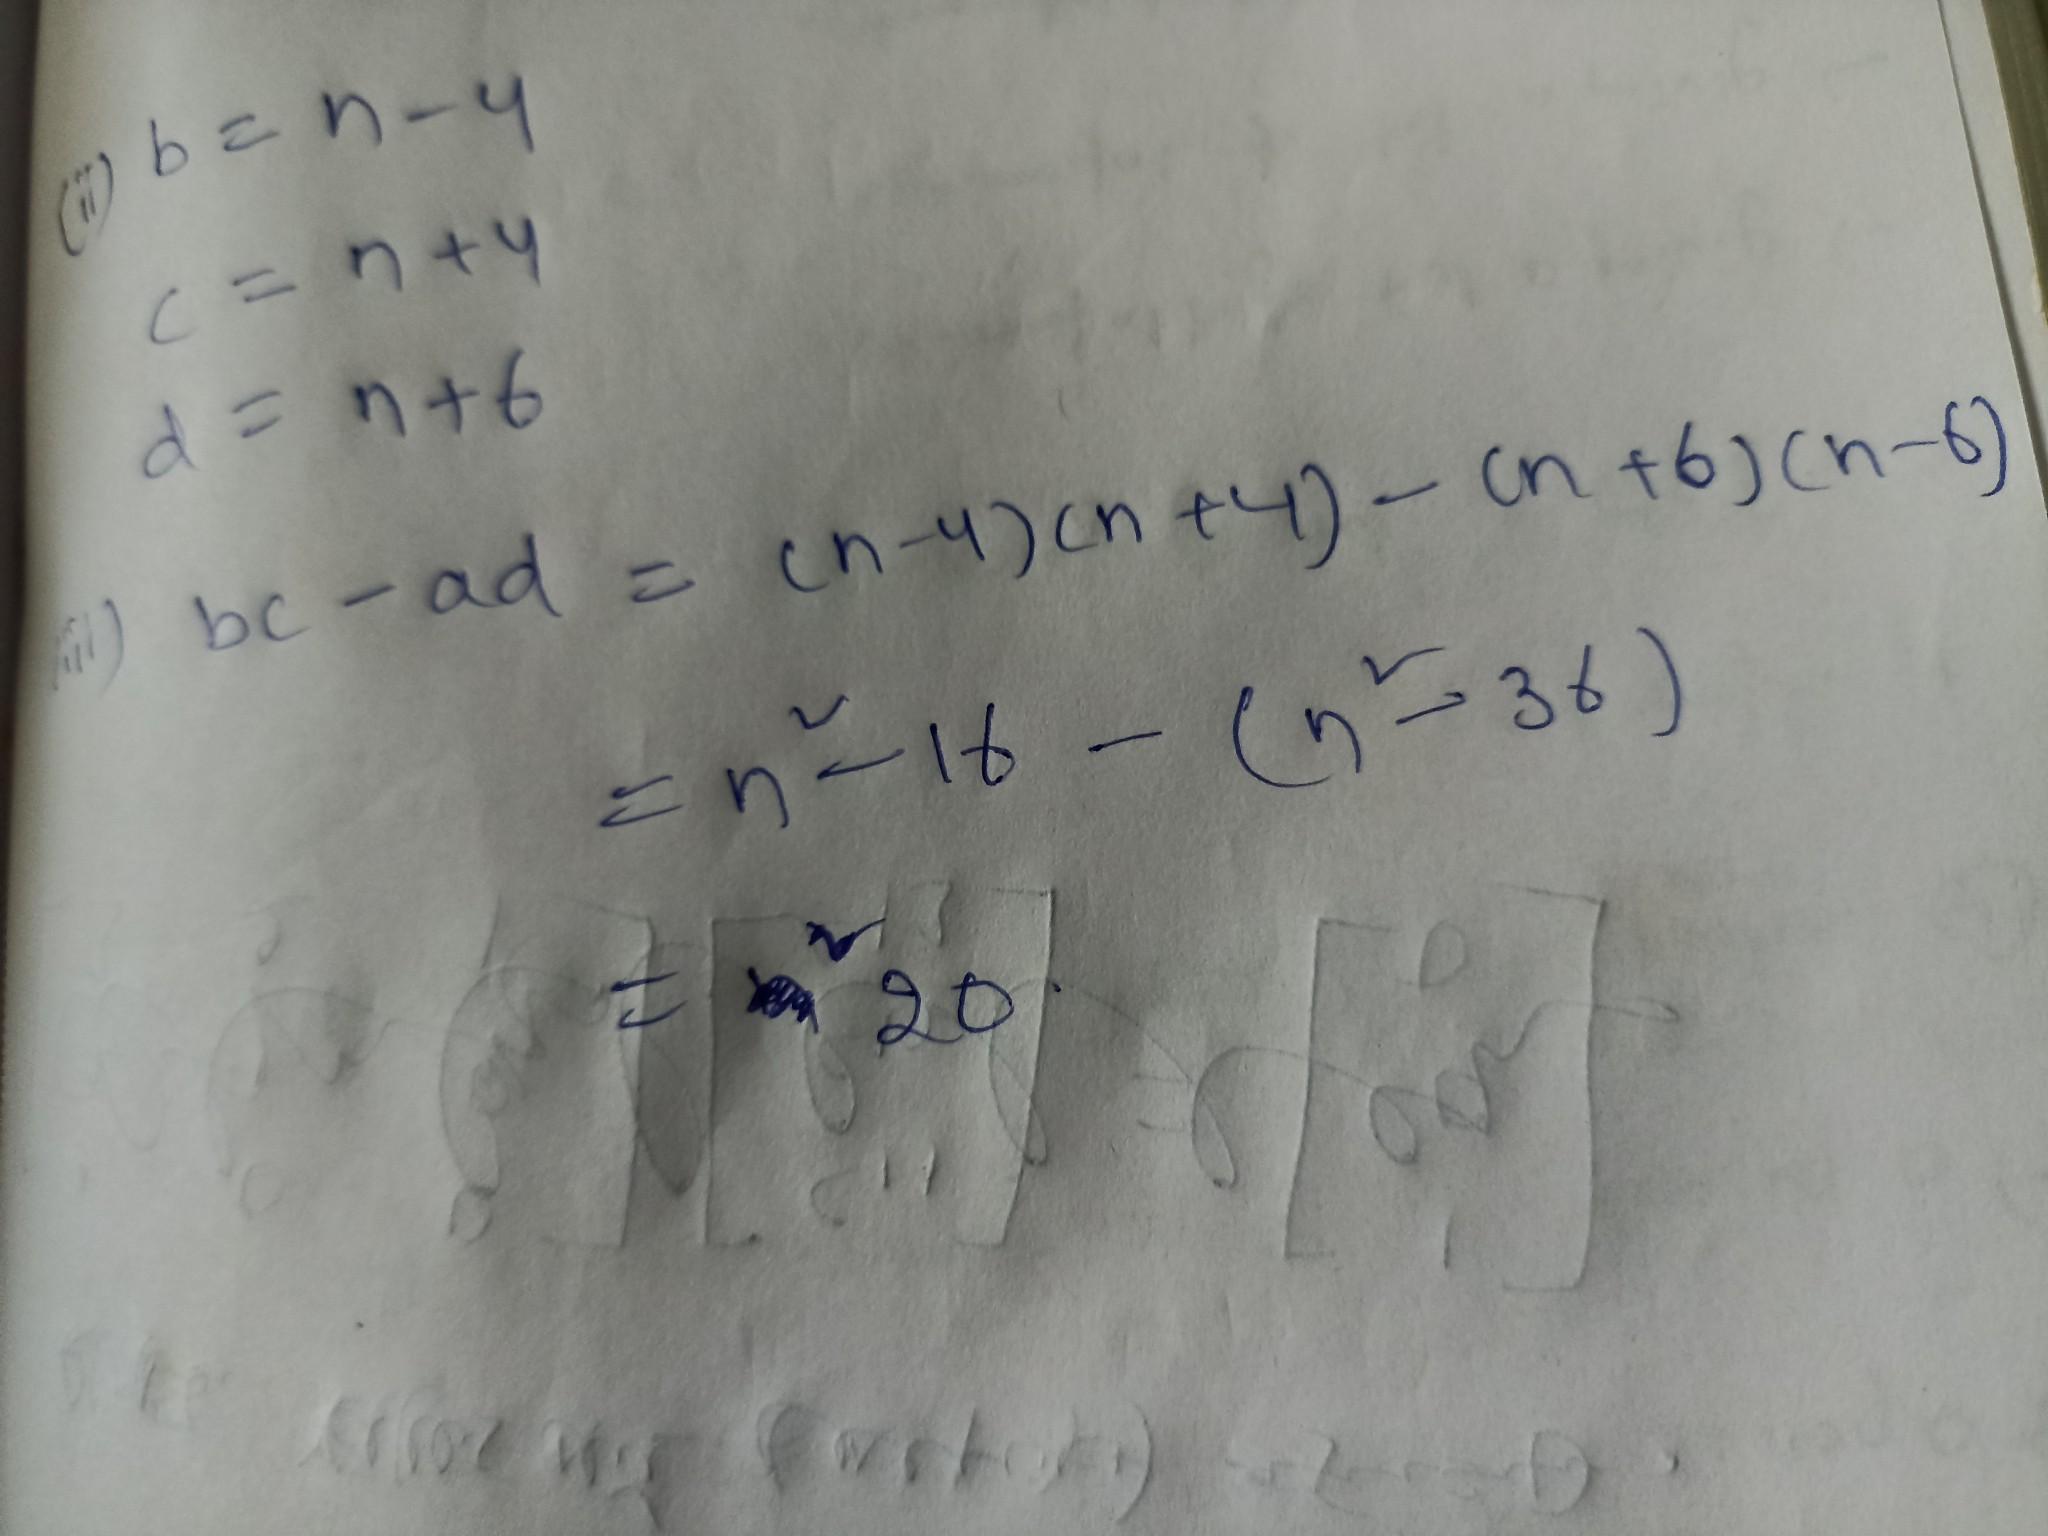 (ii) b = n-4
c = n+4
d = n+6
iii) bc - ad = (n-4)(n+4) - (n+6)(n-6)
= n² - 16 - (n² - 36)
= 20.